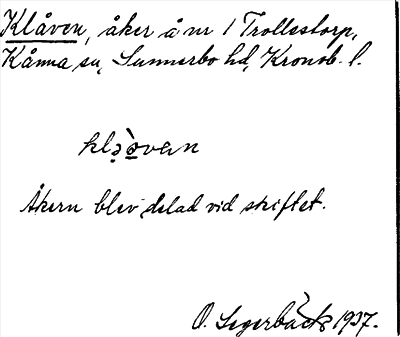 Klåven, åker å nr 1 Trollestorp,
Kånna sn, Sunnerbo hd, Kronob. l.
Åkern blev delad vid skiftet.
O. Segerbäck 1937.